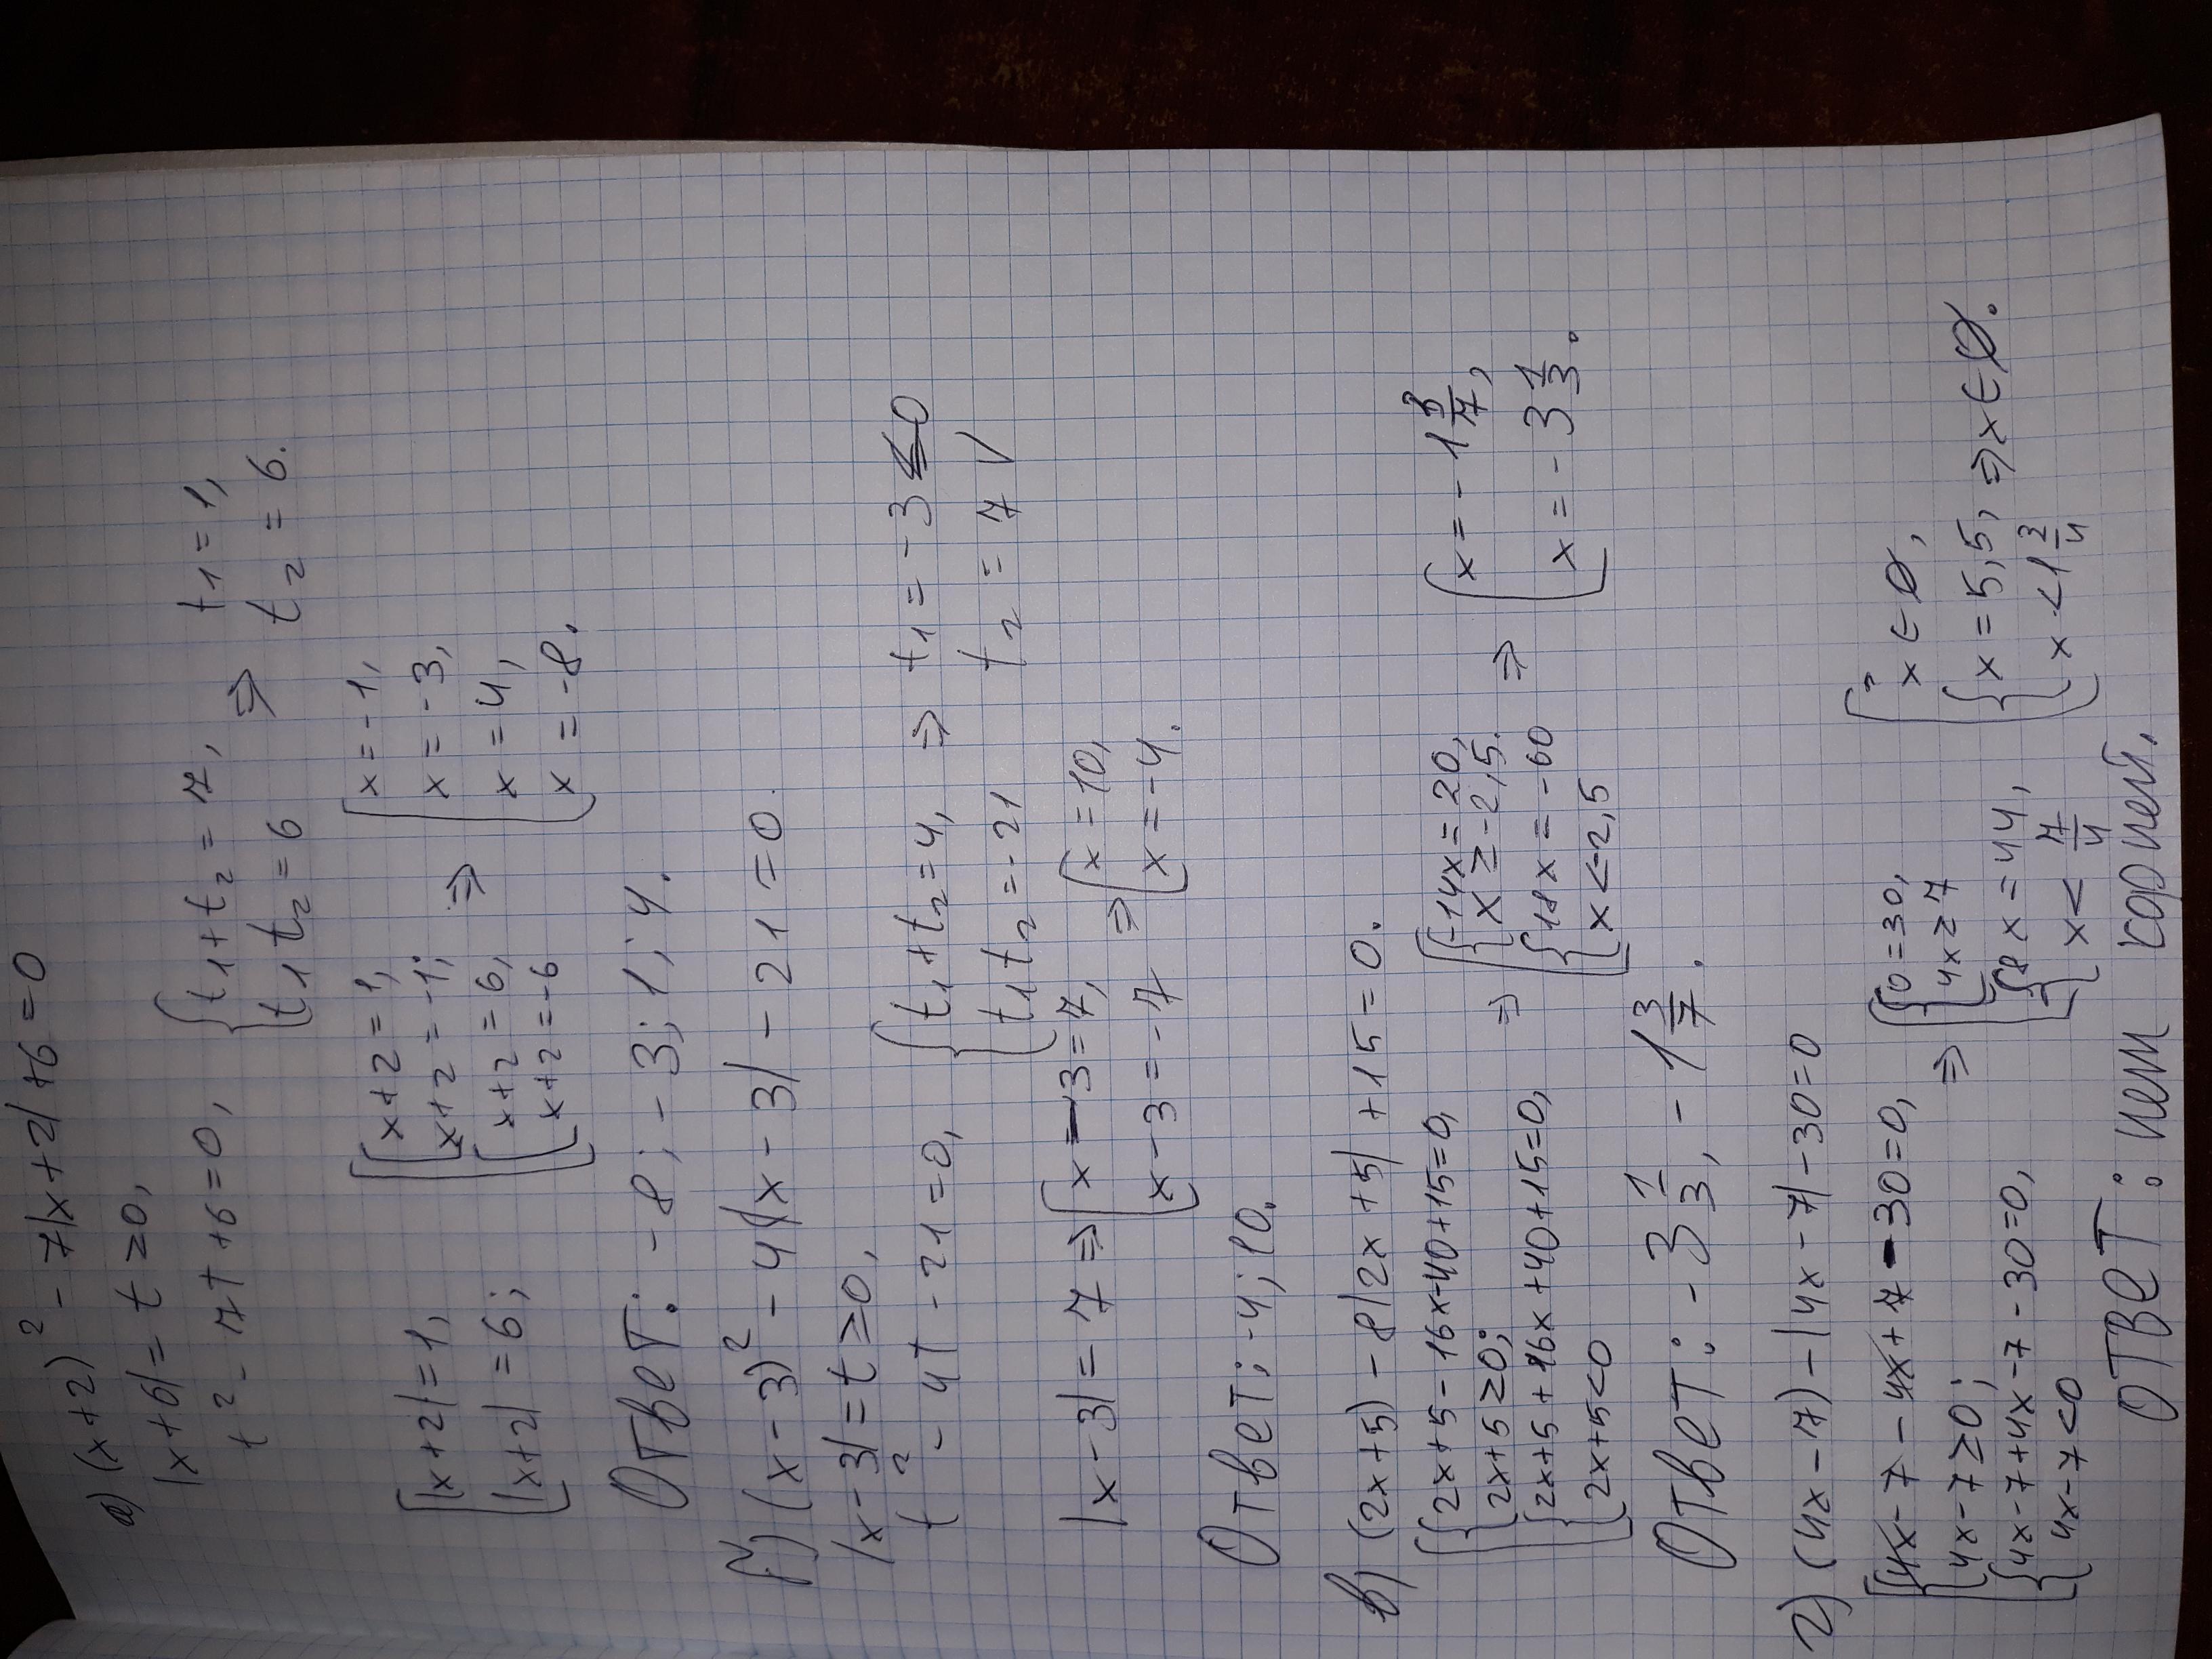 а) (x+2)² - 7|x+2| +6 = 0
|x+6| = t ≥0,
t² - 7t +6=0, {t₁+t₂ = 7, t₁t₂ = 6 ⇒ t₁ = 1, t₂ = 6.
[|x+2| = 1, |x+2| = 6; [[x+2 = 1, x+2 = -1; [x+2 = 6, x+2 = -6 ⇒ [x = -1, x = -3, x = 4, x = -8.
Ответ: -8; -3; 1; 4.
б) (x-3)² - 4|x-3| - 21 = 0.
|x-3| = t ≥0,
t² - 4t - 21 = 0, {t₁+t₂ = 4, t₁t₂ = -21 ⇒ t₁ = -3 ≤ 0 t₂ = 7 V
|x-3| = 7 ⇒ [x-3 = 7, x-3 = -7 ⇒ [x = 10, x = -4.
Ответ: -4; 10.
в) (2x+5) - 8|2x+5| +15 = 0.
[{2x+5-16x-40+15=0, 2x+5≥0; {2x+5+16x+40+15=0, 2x+5<0 ⇒ [{-14x = 20, x ≥ -2,5. {18x = -60 x < -2,5 ⇒ [x = -1 3/7, x = -3 1/3.
Ответ: -3 1/3, -1 3/7.
г) (4x-7) - |4x-7| - 30 = 0
[{4x-7-4x+7-30=0, 4x-7≥0; {4x-7+4x-7-30=0, 4x-7<0 ⇒ [{0=30, 4x≥7 {8x = 44, x < 7/4 [x ∈ ∅, {x = 5,5, x < 1 3/4 ⇒ x ∈ ∅.
Ответ: нет корней.